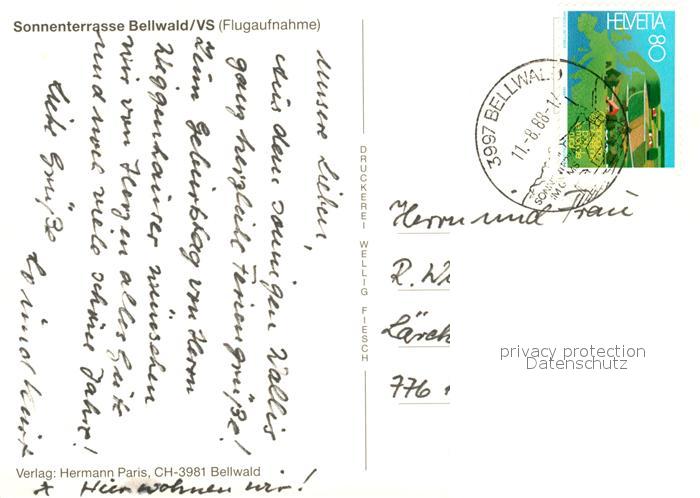 Sonnenterrasse Bellwald/VS (Flugaufnahme)
Unsere Lieben,
Aus dem sonnigen Wallis
ganz herzliche Feriengrüße!
Zum Geburtstag von Herrn
wünschen
wir von Herzen alles Gute
und noch viele schöne Jahre!
Liebe Grüße
Verlag: Hermann Paris, CH-3981 Bellwald
* Hier wohnen wir!
DRUCKEREI WELLIG FIESCH
HELVETIA 80
3997 BELLWALD
11.-8.88-1
Herrn und Frau
R. W
Lärch
776
privacy protection
Datenschutz